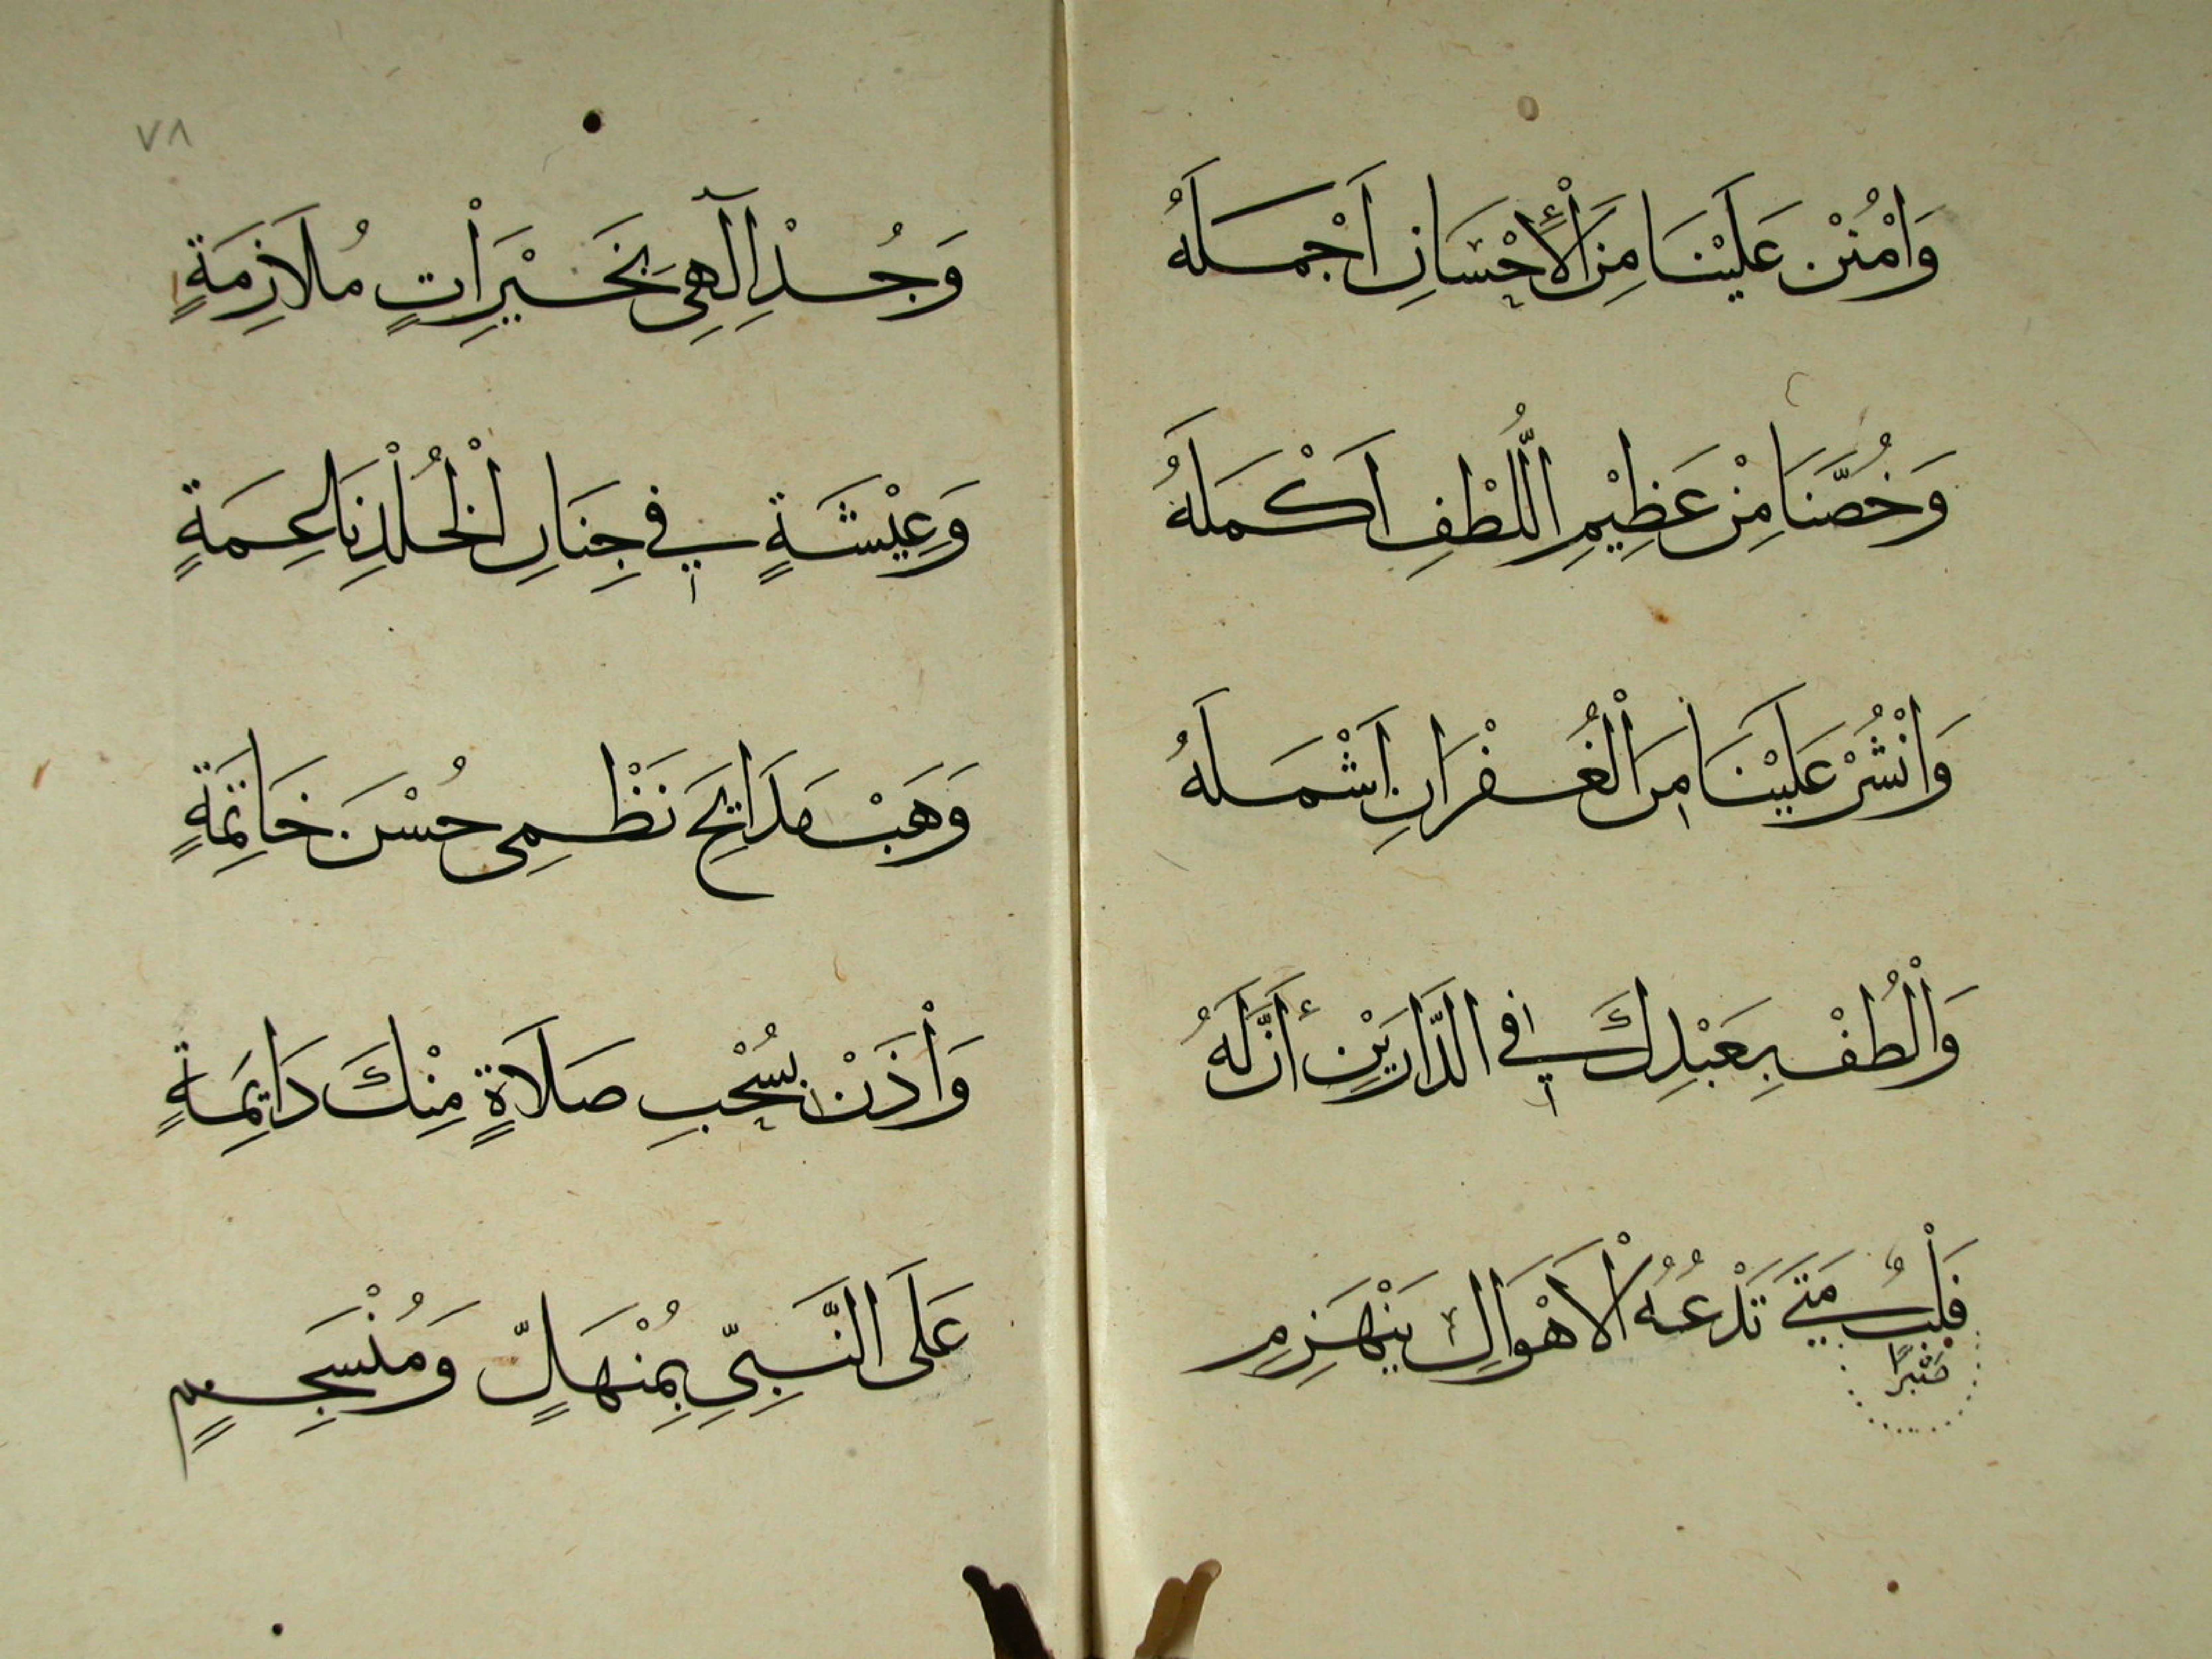 وَامْنُنْ عَلَيْنَا مِنَ الْأِحْسَانِ اَجْمَلَهُ
وَخُصَّنَا مِنْ عَظِيْمِ اللُّطْفِ اَكْمَلَهُ
وَانْشُرْ عَلَيْنَا مِنَ الْغُفْرَانِ اَشْمَلَهُ
وَالْطُفْ بِعَبْدِكَ فِي الدَّارَيْنِ أَنَّ لَهُ
قَلْبٌ مَتَى تَدْعُهُ الْاَهْوَالِ يَنْهَزِمِ
صَبْرًا
٧٨
وَجُدْ اِلٰهِى بِخَيْرَاتٍ مُلَازِمَةٍ
وَعِيْشَةٍ فِي جِنَانِ الْخُلْدِ نَاعِمَةٍ
وَهَبْ مَدَائِحَ نَظْمِى حُسْنَ خَاتِمَةٍ
وَأْذَنْ بِسُحْبِ صَلَاةٍ مِنْكَ دَايِمَةٍ
عَلَى النَّبِىِّ بِمُنْهَلٍّ وَمُنْسَجِمٍ